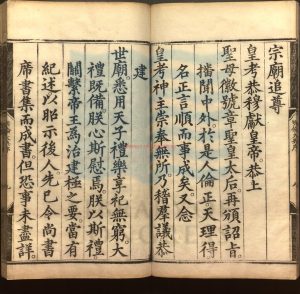 宗廟追尊
皇考恭穆獻皇帝恭上
聖母徽號章聖皇太后再頒詔旨
播聞中外於是人倫正天理得
名正言順而事成矣又念
皇考神主崇奉無所乃稽羣議恭
建
世廟悉用天子禮樂享祀無窮大
禮既備朕心斯慰焉朕以斯禮
關繫帝王為治建極之要當有
紀述以昭示後人先已令尚書
席書集而成書但恐事未盡詳